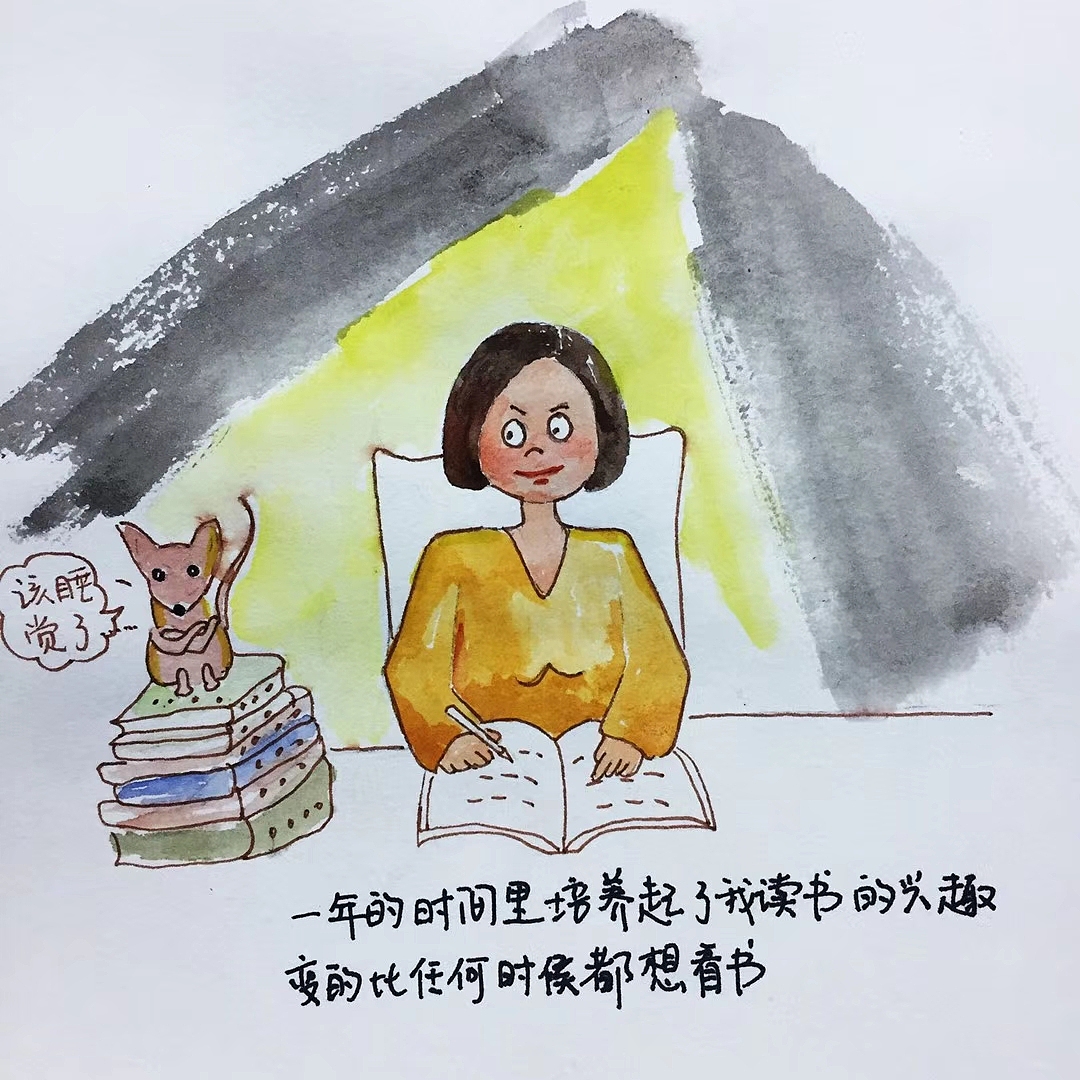 该睡
觉了
一年的时间里培养起了我读书的兴趣
变的比任何时候都想看书